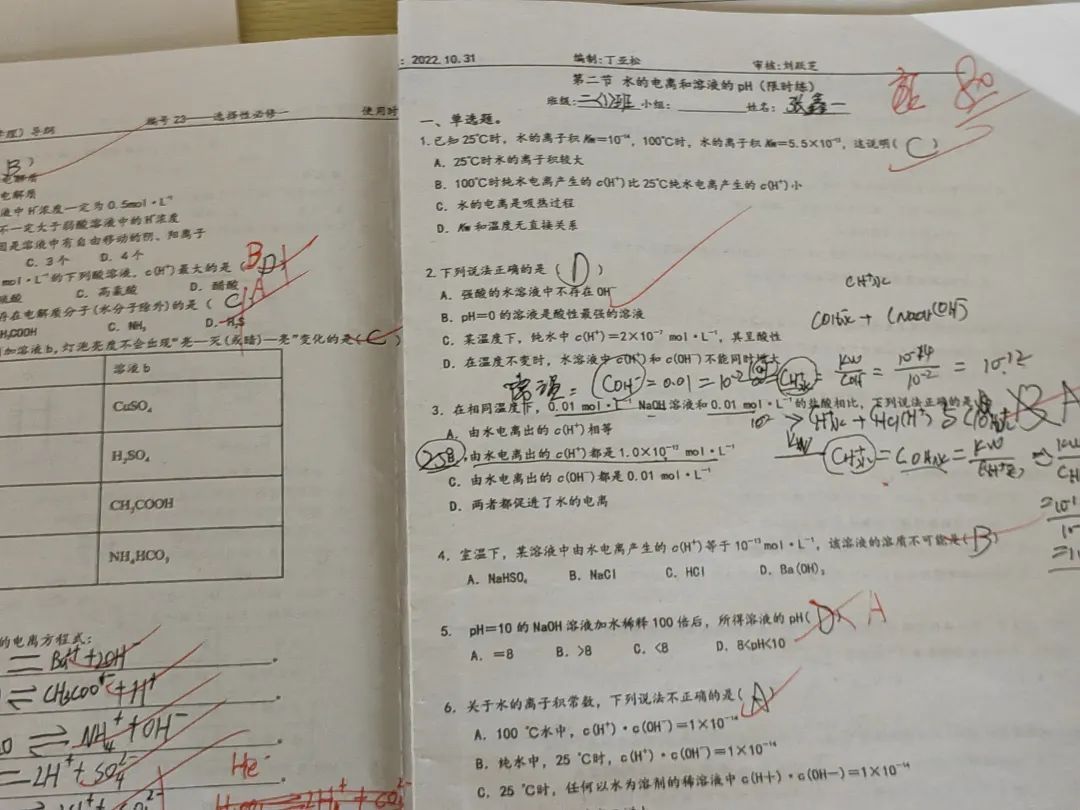 学理）导纲 编号 23——选择性必修一 使用时
B ）
电解质
电解质
液中 H⁺浓度一定为 0.5mol·L⁻¹
不一定大于弱酸溶液中的H⁺浓度
因是溶液中有自由移动的阴、阳离子
C. 3个 D. 4个
mol·L⁻¹的下列酸溶液，c(H⁺)最大的是（ D B
硫酸 C. 高氯酸 D. 醋酸
存在电解质分子(水分子除外)的是（ C A
H₃COOH C. NH₃ D. H₂S
加溶液b，灯泡亮度不会出现“亮—灭(或暗)—亮”变化的是( C )
溶液 b
CuSO₄
H₂SO₄
CH₃COOH
NH₄HCO₃
的电离方程式：
= Ba²⁺+2OH⁻
⇌ CH₃COO⁻+H⁺
⇌ NH₄⁺+OH⁻
=2H⁺+SO₄²⁻
: 2022.10.31 编制：丁亚松 审核：刘跃芝
第二节 水的电离和溶液的pH（限时练）
班级: 二(1)班 小组: 姓名: 张鑫一
80
一、单选题。
1.已知25℃时，水的离子积Kw=10⁻¹⁴，100℃时，水的离子积Kw=5.5×10⁻¹³，这说明( C )
A. 25℃时水的离子积较大
B. 100℃时纯水电离产生的c(H⁺)比25℃纯水电离产生的c(H⁺)小
C. 水的电离是吸热过程
D. Kw和温度无直接关系
2.下列说法正确的是（ D ）
A. 强酸的水溶液中不存在OH⁻
B. pH=0的溶液是酸性最强的溶液
C. 某温度下，纯水中c(H⁺)=2×10⁻⁷ mol·L⁻¹，其呈酸性
D. 在温度不变时，水溶液中c(H⁺)和c(OH⁻)不能同时增大
= 0.01 = 10⁻² = 10⁻¹²
3. 在相同温度下，0.01 mol·L⁻¹ NaOH溶液和0.01 mol·L⁻¹的盐酸相比，下列说法正确的是 B A
A. 由水电离出的c(H⁺)相等
B.由水电离出的c(H⁺)都是1.0×10⁻¹² mol·L⁻¹
C. 由水电离出的c(OH⁻)都是0.01 mol·L⁻¹
D. 两者都促进了水的电离
4. 室温下，某溶液中由水电离产生的c(H⁺)等于10⁻¹³mol·L⁻¹，该溶液的溶质不可能是( B )
A. NaHSO₄ B. NaCl C. HCl D. Ba(OH)₂
5. pH=10的NaOH溶液加水稀释100倍后，所得溶液的pH( D A
A. =8 B. >8 C. <8 D. 8<pH<10
6. 关于水的离子积常数，下列说法不正确的是( A )
A. 100 ℃水中，c(H⁺)·c(OH⁻)=1×10⁻¹⁴
B. 纯水中，25 ℃时，c(H⁺)·c(OH⁻)=1×10⁻¹⁴
C. 25 ℃时，任何以水为溶剂的稀溶液中c(H+)·c(OH—)=1×10⁻¹⁴